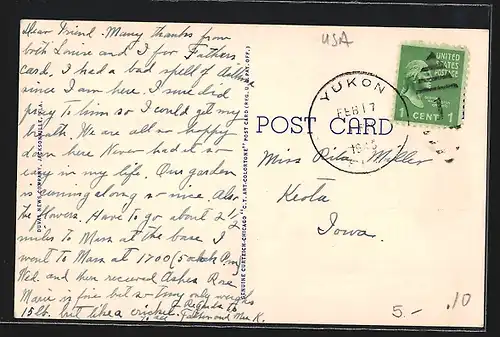 Dear Friend. Many thanks from
both Louise and I for Fathers
card. I had a bad spell of Asthma
since I am here. I sure did
pray to him so I could get my
breath. We are all so happy
down here. Never had it so
easy in my life. Our garden
is coming along so nice. Also
the flowers. Have to go about 2 1/2
miles to Mass at the base I
went to Mass at 1700 (5 o'clock P.m.)
Wed. and there received Ashes. Rose
Marie is fine but so tiny only weighs
15 lb. but like a cricket. Regards to
to all Father and Mrs K.
DUVAL NEWS COMPANY, JACKSONVILLE, FLA.
GENUINE CURTEICH-CHICAGO "C.T. ART-COLORTONE" POST CARD (REG. U.S. PAT. OFF.)
USA
YUKON
FEB 17
UNITED
STATES
POSTAGE
1 CENT 1
POST CARD
Miss Rita Miller
Keota
Iowa.
5.- .10